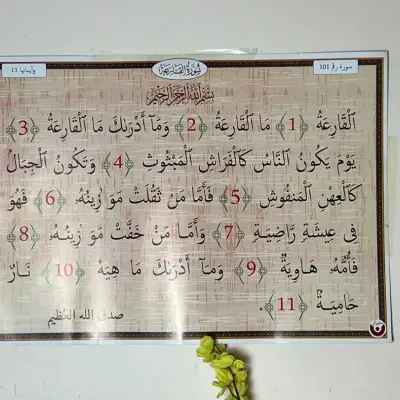 سورة رقم 101
سُورَةُ القَارِعَة
وآياتها 11
بِسْمِ اللَّهِ الرَّحْمَٰنِ الرَّحِيمِ
ٱلْقَارِعَةُ ﴿1﴾ مَا ٱلْقَارِعَةُ ﴿2﴾ وَمَآ أَدْرَىٰكَ مَا ٱلْقَارِعَةُ ﴿3﴾
يَوْمَ يَكُونُ ٱلنَّاسُ كَٱلْفَرَاشِ ٱلْمَبْثُوثِ ﴿4﴾ وَتَكُونُ ٱلْجِبَالُ
كَٱلْعِهْنِ ٱلْمَنفُوشِ ﴿5﴾ فَأَمَّا مَن ثَقُلَتْ مَوَٰزِينُهُۥ ﴿6﴾ فَهُوَ
فِى عِيشَةٍ رَّاضِيَةٍ ﴿7﴾ وَأَمَّا مَنْ خَفَّتْ مَوَٰزِينُهُۥ ﴿8﴾
فَأُمُّهُۥ هَاوِيَةٌ ﴿9﴾ وَمَآ أَدْرَىٰكَ مَا هِيَهْ ﴿10﴾ نَارٌ
حَامِيَةٌۢ ﴿11﴾.
صدق الله العظيم